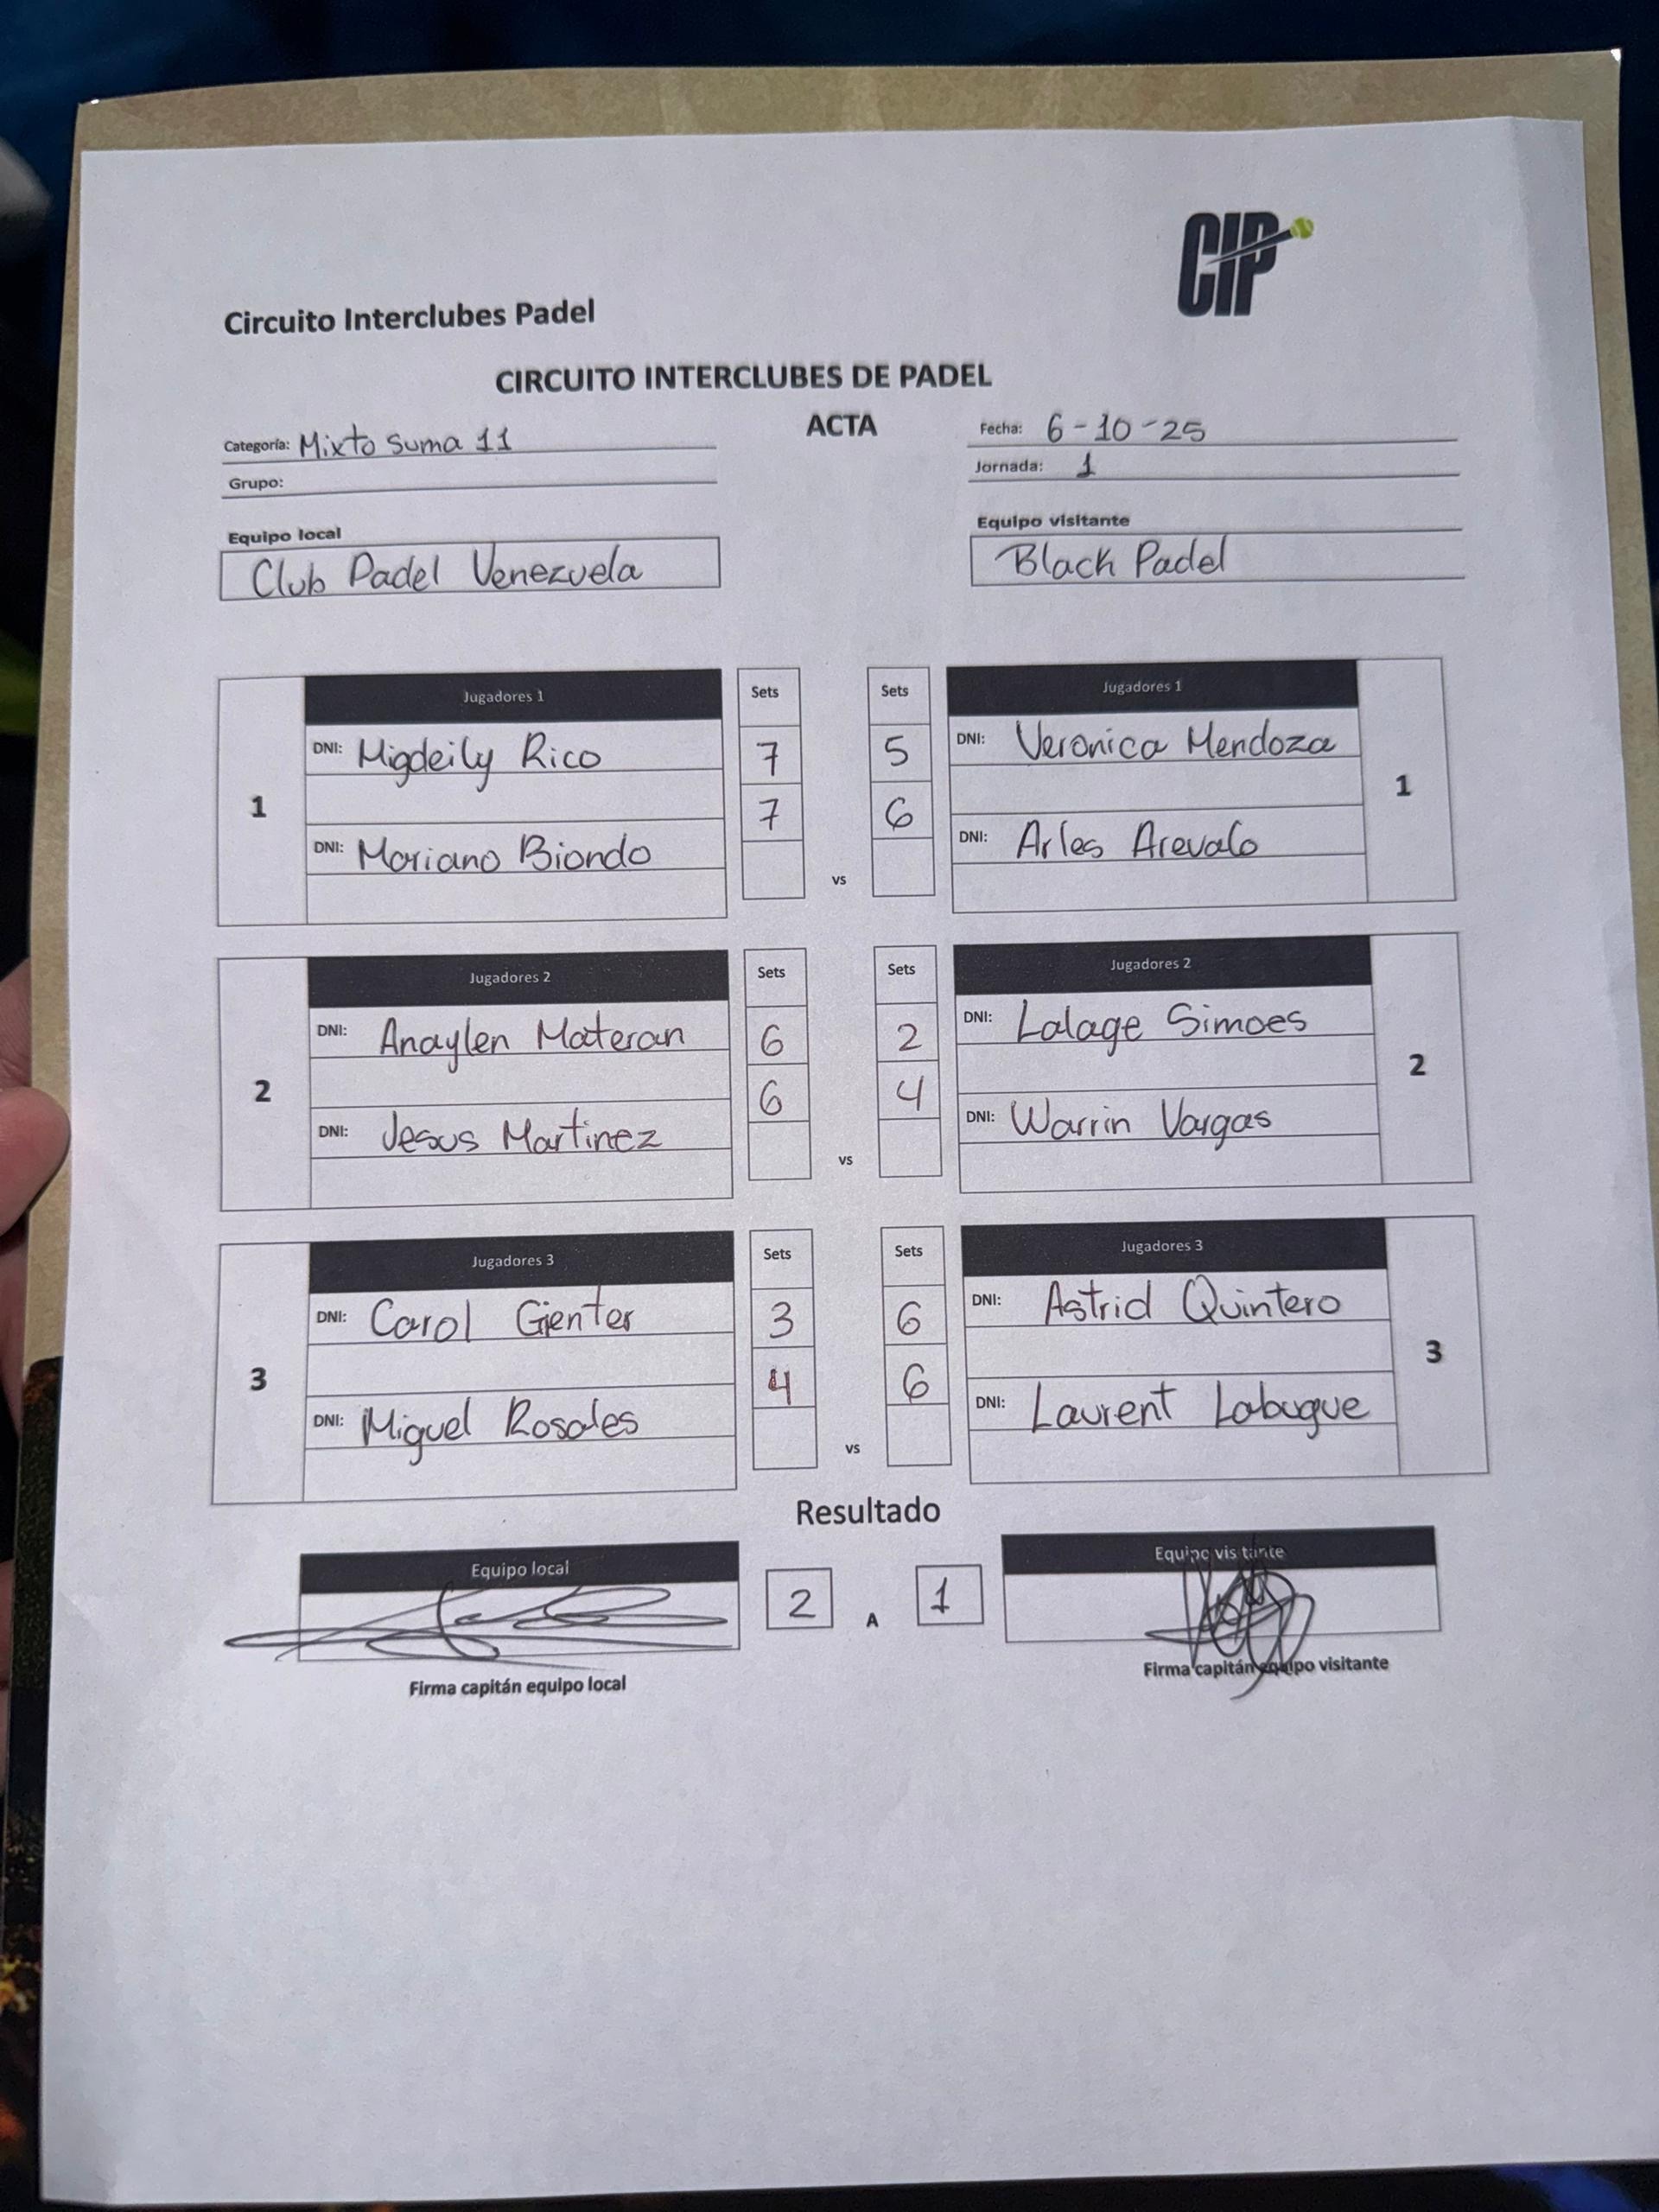 CIP
Circuito Interclubes Padel
CIRCUITO INTERCLUBES DE PADEL
ACTA
Categoría: Mixto Suma 11
Fecha: 6-10-25
Grupo:
Jornada: 1
Equipo local
Equipo visitante
Club Padel Venezuela
Black Padel
Jugadores 1 Sets Sets Jugadores 1
DNI: Migdeily Rico 7 5 DNI: Veronica Mendoza
1 7 6 1
DNI: Mariano Biondo vs DNI: Arles Arevalo
Jugadores 2 Sets Sets Jugadores 2
DNI: Anaylen Materan 6 2 DNI: Lalage Simoes
2 6 4 2
DNI: Jesus Martinez vs DNI: Warrin Vargas
Jugadores 3 Sets Sets Jugadores 3
DNI: Carol Gienter 3 6 DNI: Astrid Quintero
3 4 6 3
DNI: Miguel Rosales vs DNI: Laurent Labugue
Resultado
Equipo local 2 A 1 Equipo visitante
Firma capitán equipo local
Firma capitán equipo visitante